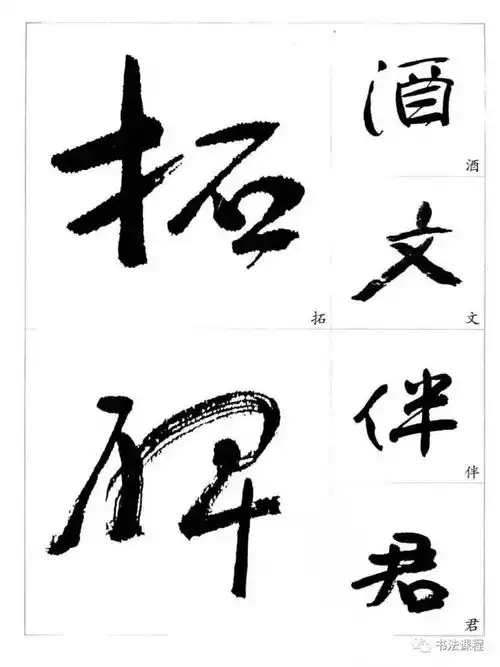 酒
酒
文
文
伴
伴
君
君
拓
拓
碑
书法课程